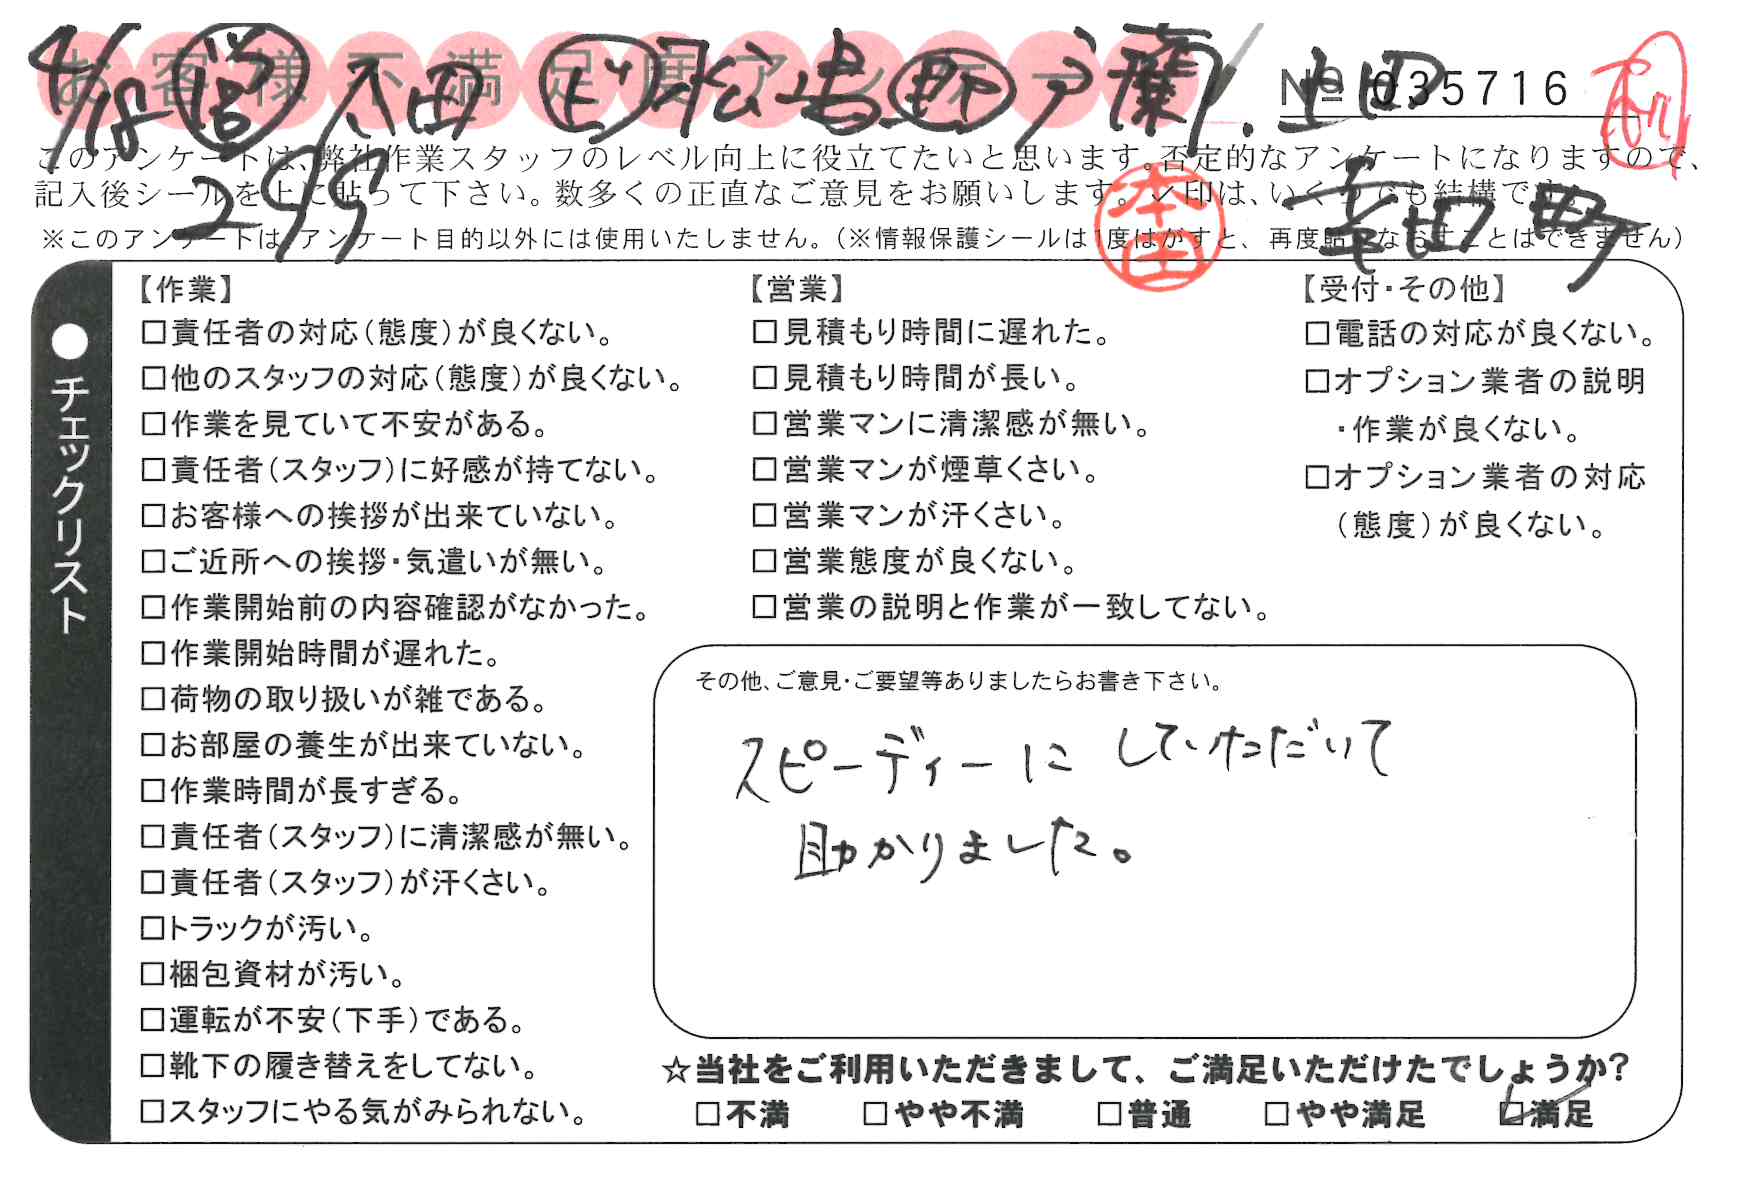 お客様不満足度アンケート
4/18 営 太田 ビ 月松 島 野 戸蘭 . 上田
№ 035716
295
幸田町
本田
このアンケートは、弊社作業スタッフのレベル向上に役立てたいと思います。否定的なアンケートになりますので、
記入後シールを上に貼って下さい。数多くの正直なご意見をお願いします。レ印は、いくつでも結構です。
※このアンケートは、アンケート目的以外には使用いたしません。（※情報保護シールは1度はがすと、再度貼りなおすことはできません）
●チェックリスト
【作業】
□責任者の対応（態度）が良くない。
□他のスタッフの対応（態度）が良くない。
□作業を見ていて不安がある。
□責任者（スタッフ）に好感が持てない。
□お客様への挨拶が出来ていない。
□ご近所への挨拶・気遣いが無い。
□作業開始前の内容確認がなかった。
□作業開始時間が遅れた。
□荷物の取り扱いが雑である。
□お部屋の養生が出来ていない。
□作業時間が長すぎる。
□責任者（スタッフ）に清潔感が無い。
□責任者（スタッフ）が汗くさい。
□トラックが汚い。
□梱包資材が汚い。
□運転が不安（下手）である。
□靴下の履き替えをしてない。
□スタッフにやる気がみられない。
【営業】
□見積もり時間に遅れた。
□見積もり時間が長い。
□営業マンに清潔感が無い。
□営業マンが煙草くさい。
□営業マンが汗くさい。
□営業態度が良くない。
□営業の説明と作業が一致してない。
【受付・その他】
□電話の対応が良くない。
□オプション業者の説明
・作業が良くない。
□オプション業者の対応
（態度）が良くない。
その他、ご意見・ご要望等ありましたらお書き下さい。
スピーディーに していただいて
助かりました。
☆当社をご利用いただきまして、ご満足いただけたでしょうか？
□不満 □やや不満 □普通 □やや満足 ☑満足